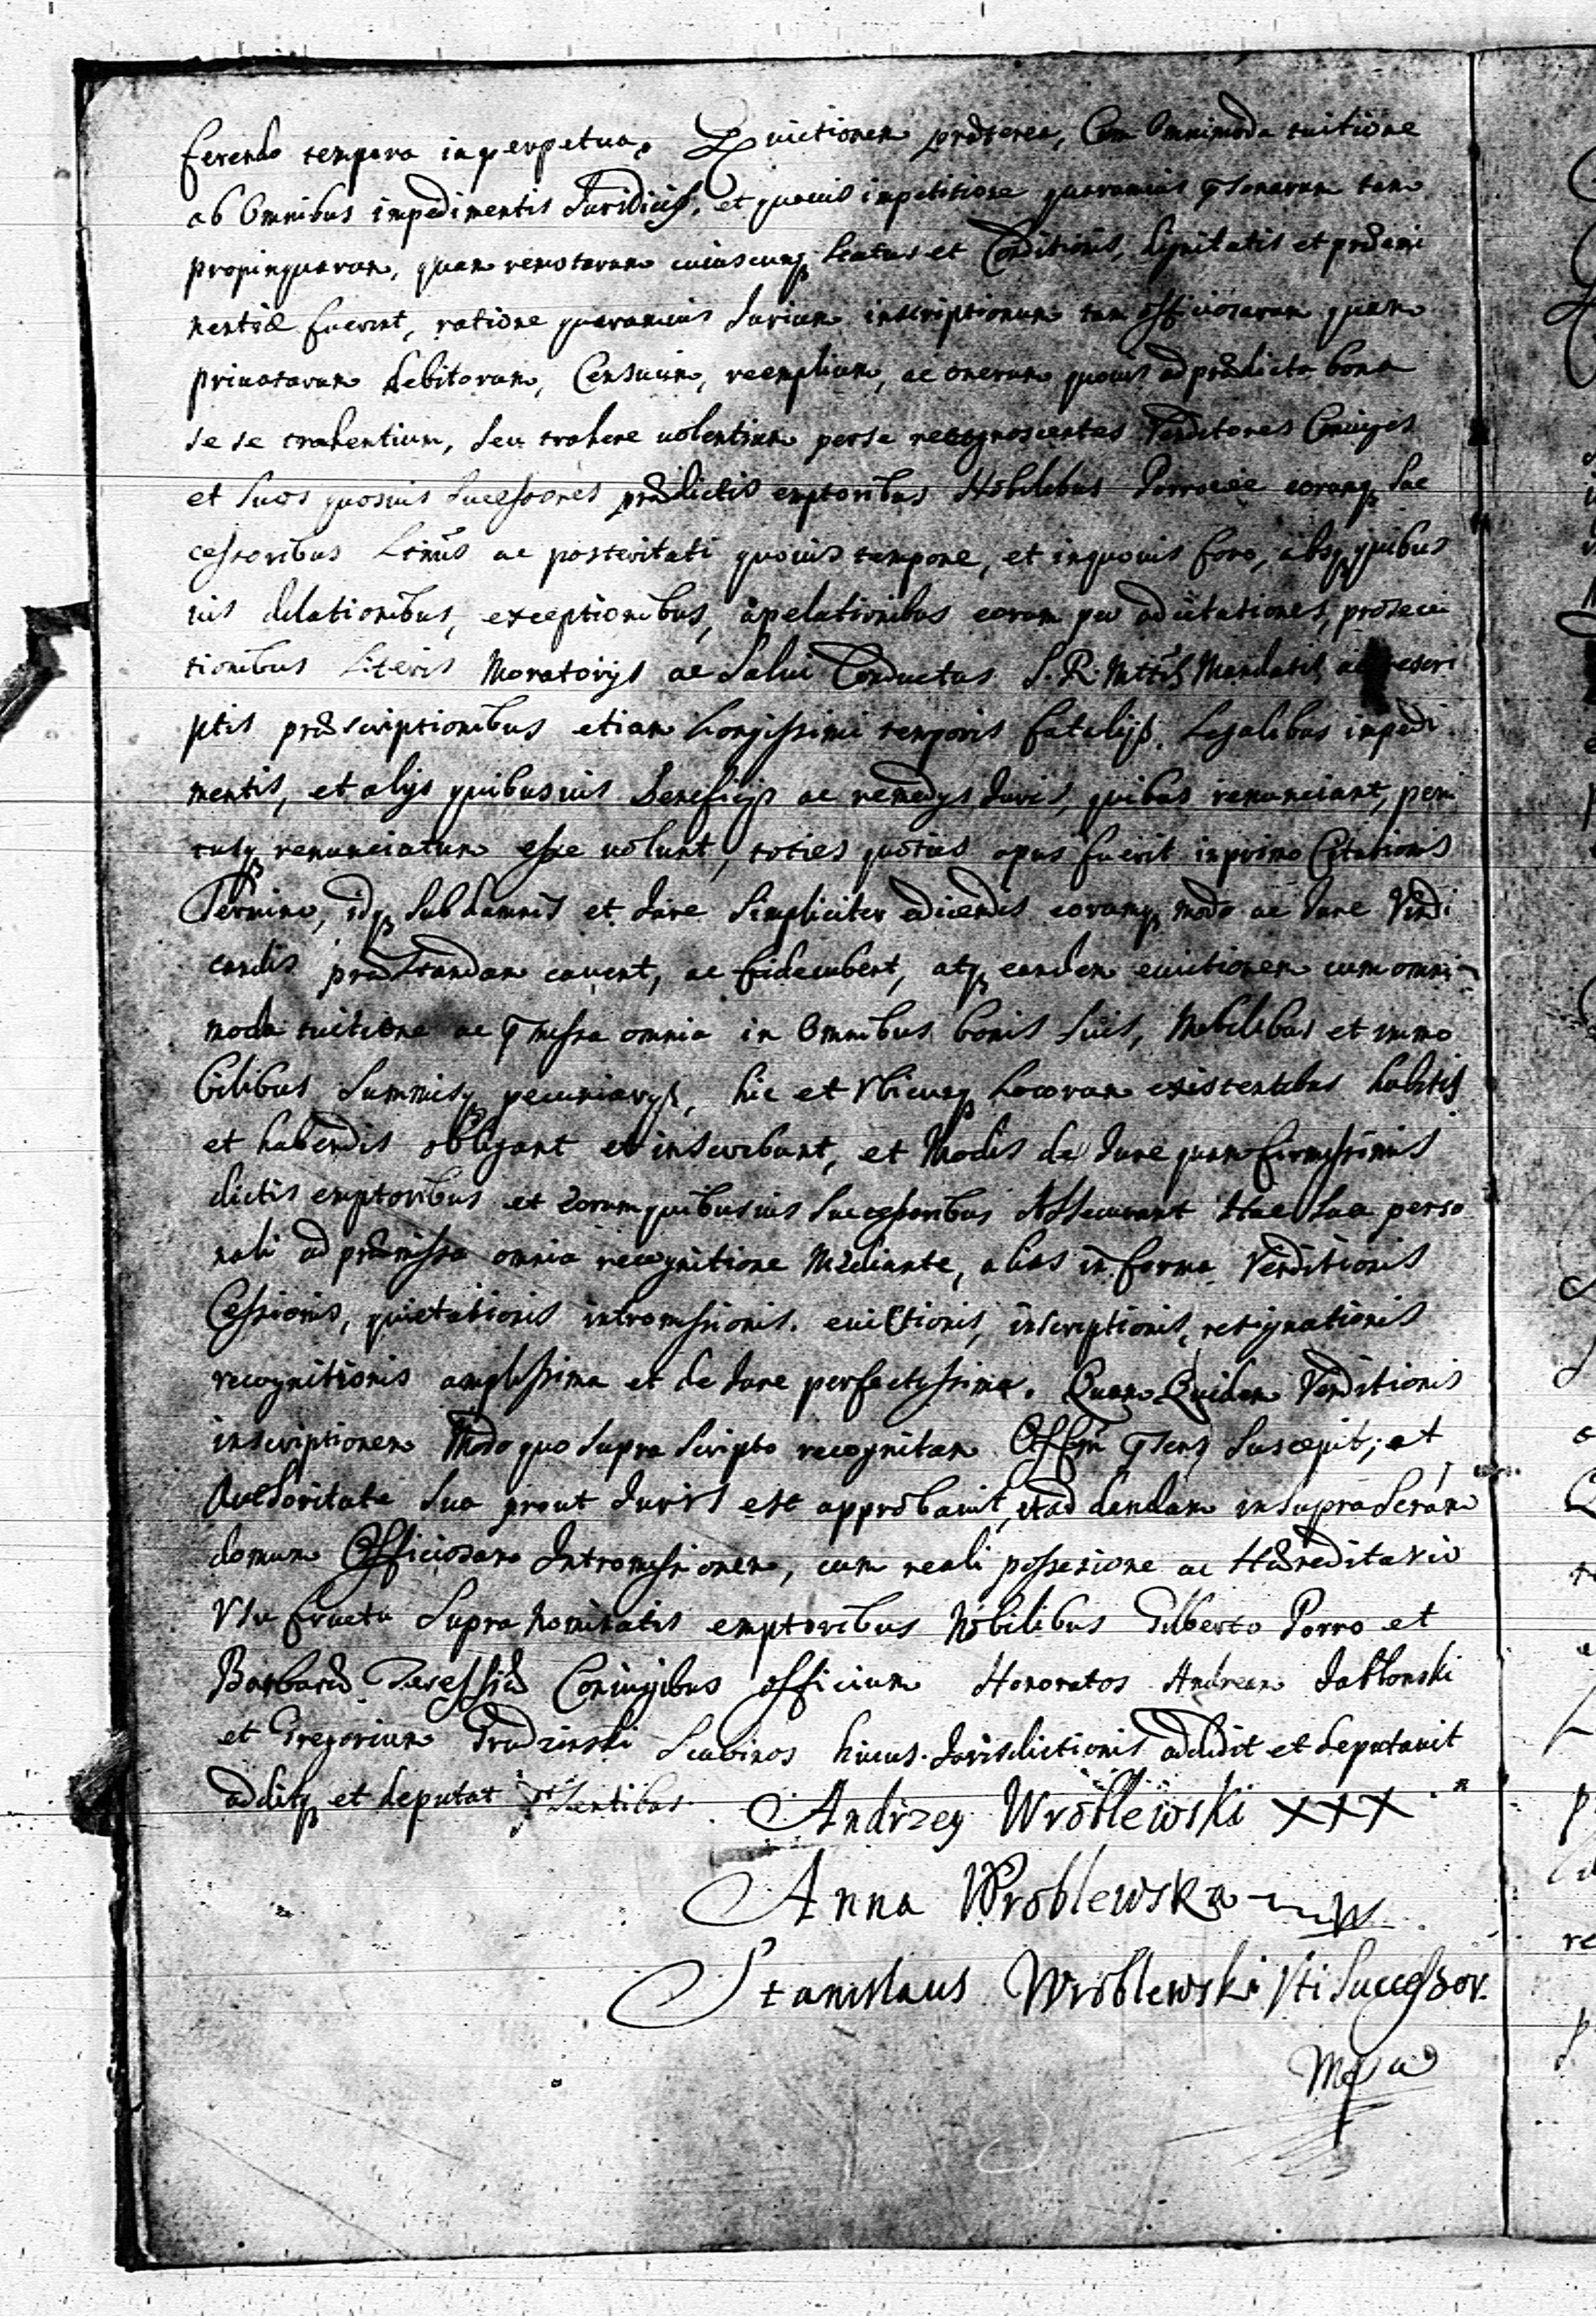 ferendo tempora in perpetua. Evictionem præterea, Cum Omnimoda tuitione
ab Omnibus impedimentis Juridicis, et quavis impetitione quarumvis psonarum tam
propinquarum, quam remotarum cuiuscunq status et Conditionis, dignitatis et præemi
nentiæ fuerint, ratione quarumvis Jurium inscriptionum tam officiosarum quam
privatarum debitorum, Censuum, reemptium, ac onerum quovis ad prædicta bona
se se trahentium, seu trahere volentium per se recognoscentes Venditores Coniuges
et suos quosvis successores prædictis emptoribus Nobilibus Porroiæ eorumq suc
cessoribus Ltimis ac posteritati quovis tempore, et in quovis foro, absq quibus
vis dilationibus, exceptionibus, apelationibus earum pro adcitationes, prosecu
tionibus Literis Moratorijs ac Salvi Conductus S. R. Mttis Mandatis, ac rescri
ptis præscriptionibus etiam Longissimi temporis fatalijs, Legalibus impedi
mentis, et alijs quibusvis Beneficijs ac remedijs Juris, quibus renunciant, peni
tusq renunciatum esse volunt, toties quoties opus fuerit in primo Citationis
Termino, idq sub damnis et Jure simpliciter edicendis eorumq modo ac Jure Vindi
candis præstandam cavent, ac fideiubent, atq eandem evictionem cum omni
moda tuitione ac pmissa omnia in Omnibus bonis suis, Mobilibus et immo
bilibus Summisq pecuniarys, hic et Vbicunq Locorum existentibus habitis
et habendis obligant et inscribunt, et Modis de Jure quam firmissimis
dictis emptoribus et eorum quibusvis successoribus Assecurant Hac sua perso
nali ad præmissa omnia recognitione Mediante, alias in forma Venditionis
Cessionis, quietationis intromissionis, evictionis, inscriptionis, resignationis
recognitionis amplissima et de Jure perfectissima. Quam Quidem Venditionis
inscriptionem Modo quo supra scripto recognitam Offm psens suscepit, et
Authoritate sua prout Juris est approbavit, et ad dandam in supra
domum Officiosam Intromissionem, cum reali possesione ac Hæreditario
Vsu fructu supra Nominatis emptoribus Nobilibus Gilberto Porro et
Barbaræ Coniugibus officium Honoratos Andream Jablonski
et Gregorium Grudzinski Scabinos huius Jurisdictionis addidit et deputavit
additq et deputat psentibus.
Andrzey Wróblewski XXX
Anna Wroblewska
Stanislaus Wroblewski Successor
mpp